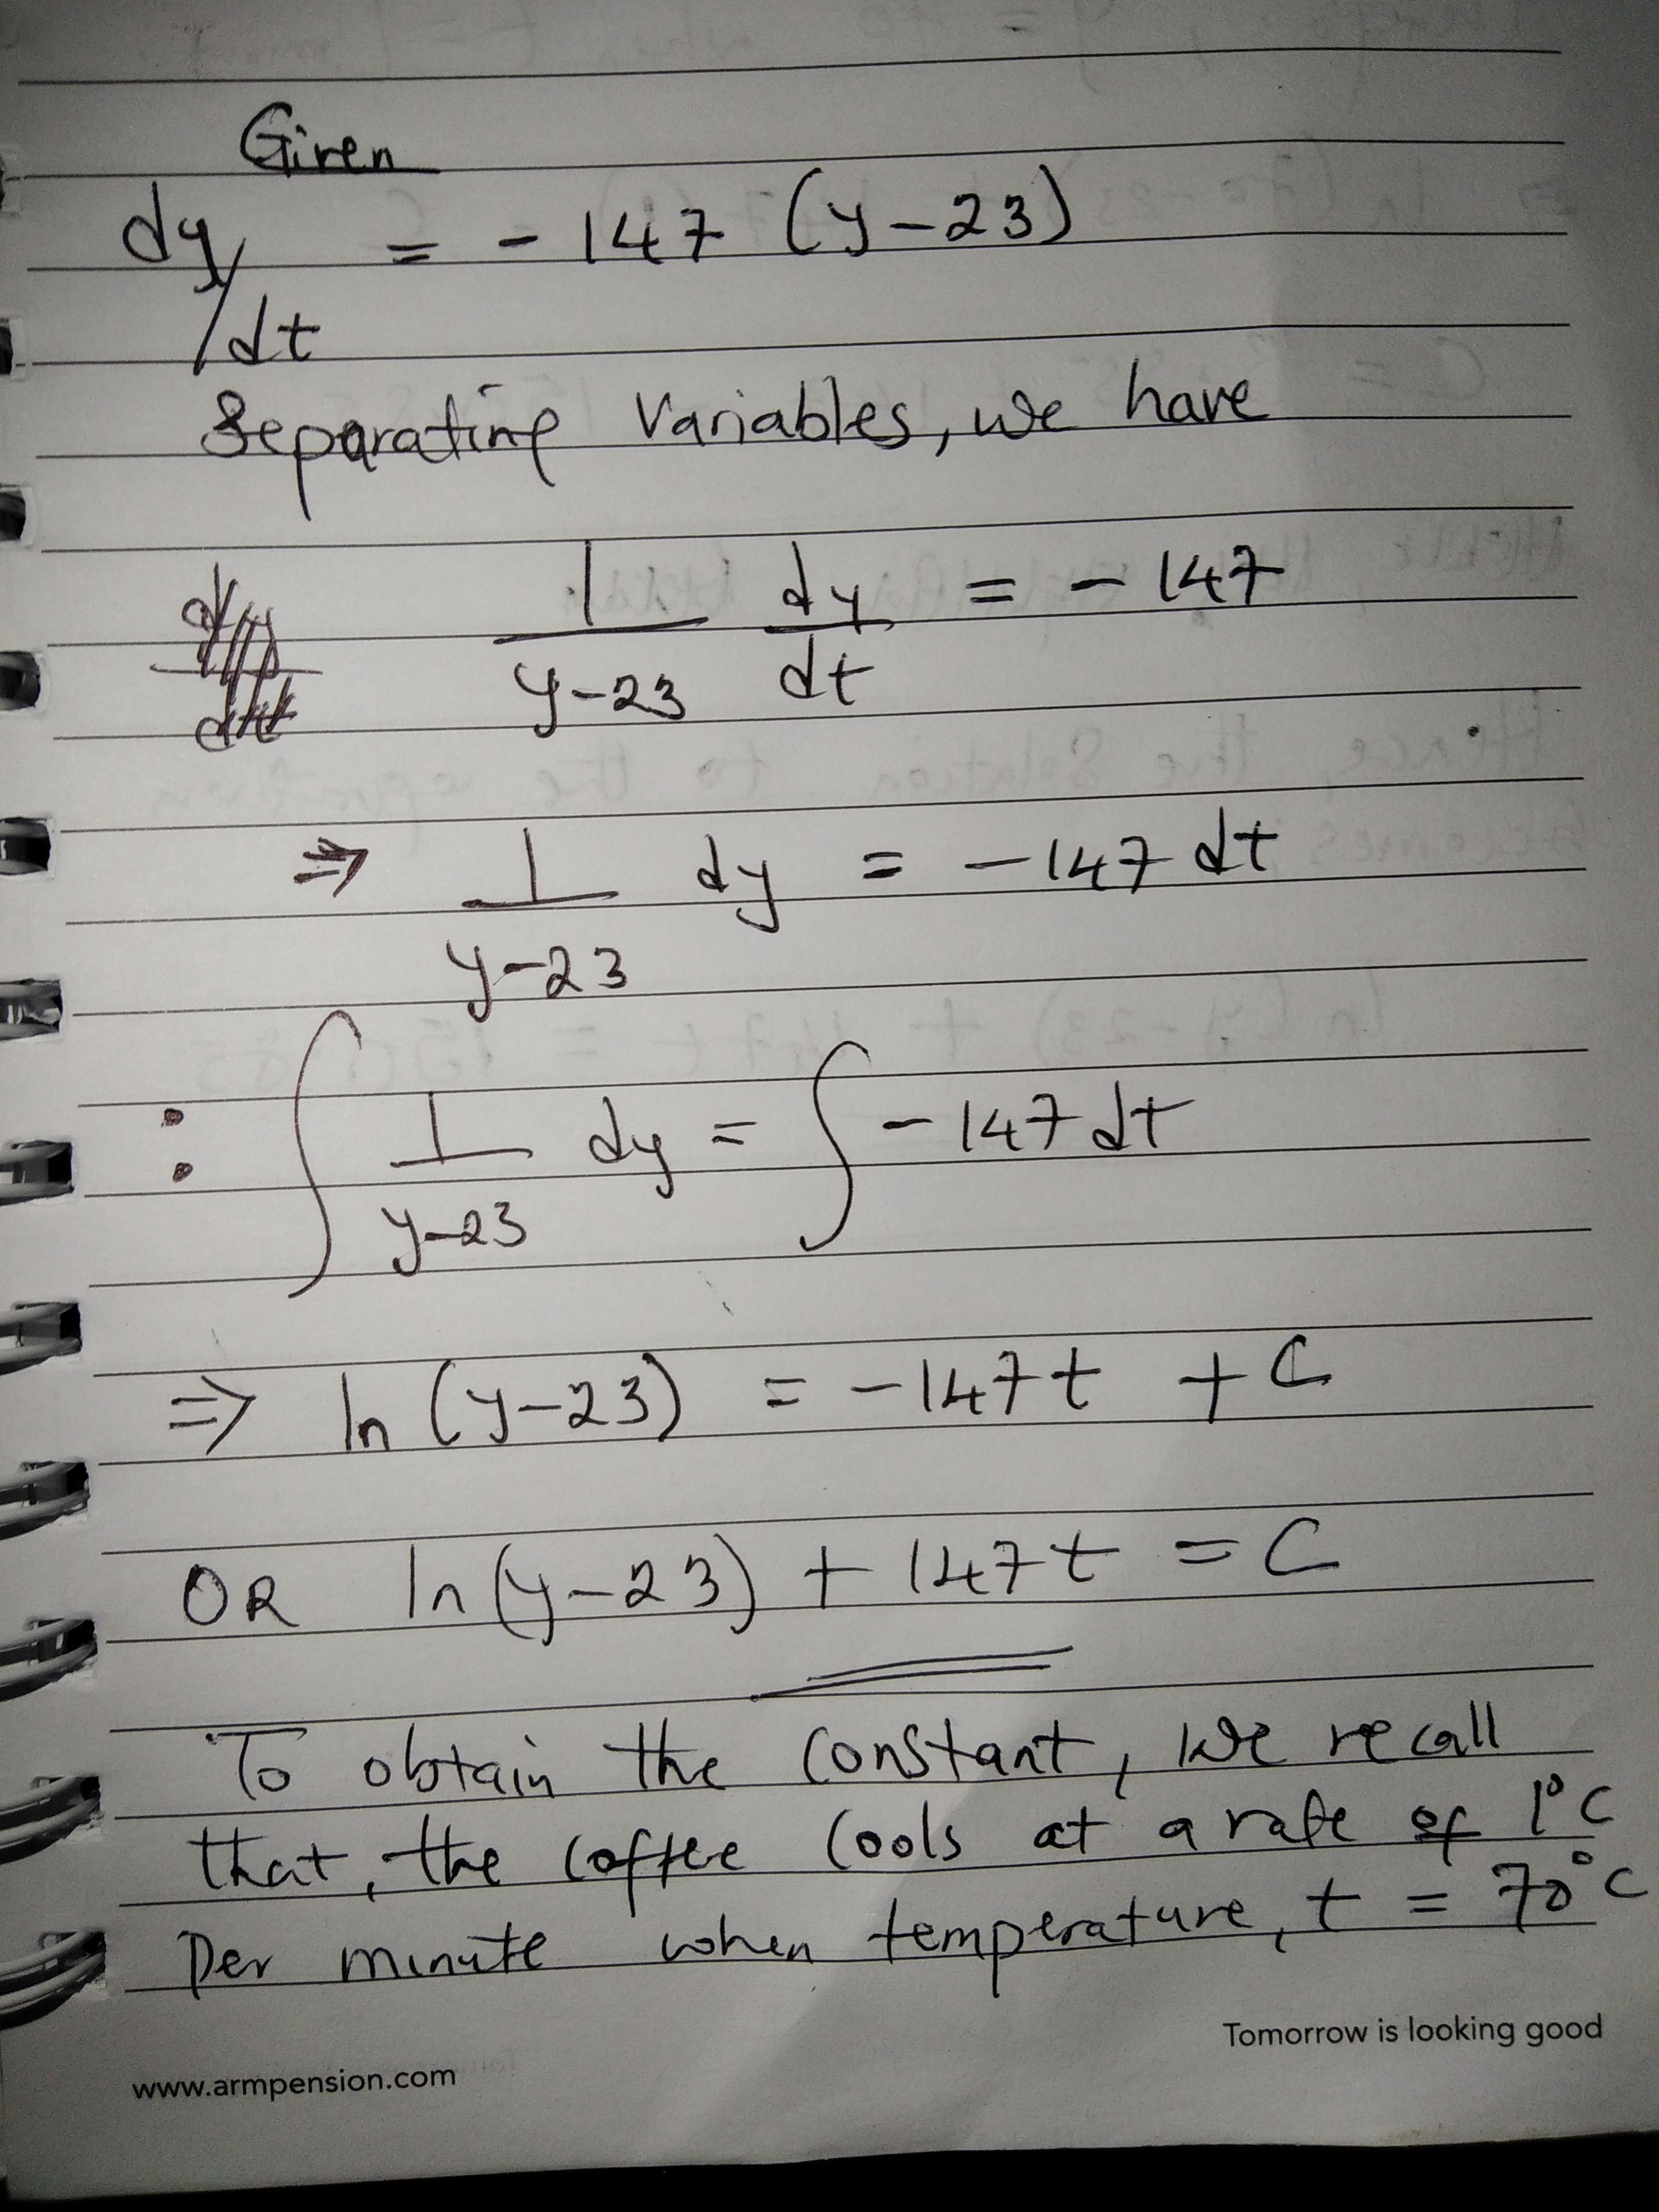 Given
dy/dt = - 147 (y-23)
Separating Variables, we have
1/y-23 dy/dt = - 147
⇒ 1/y-23 dy = -147 dt
: ∫ 1/y-23 dy = ∫ -147 dt
⇒ ln (y-23) = -147t + C
OR ln(y-23) + 147t = C
To obtain the constant, we recall
that, the coffee cools at a rate of 1°C
Per minute when temperature, t = 70°C
Tomorrow is looking good
www.armpension.com